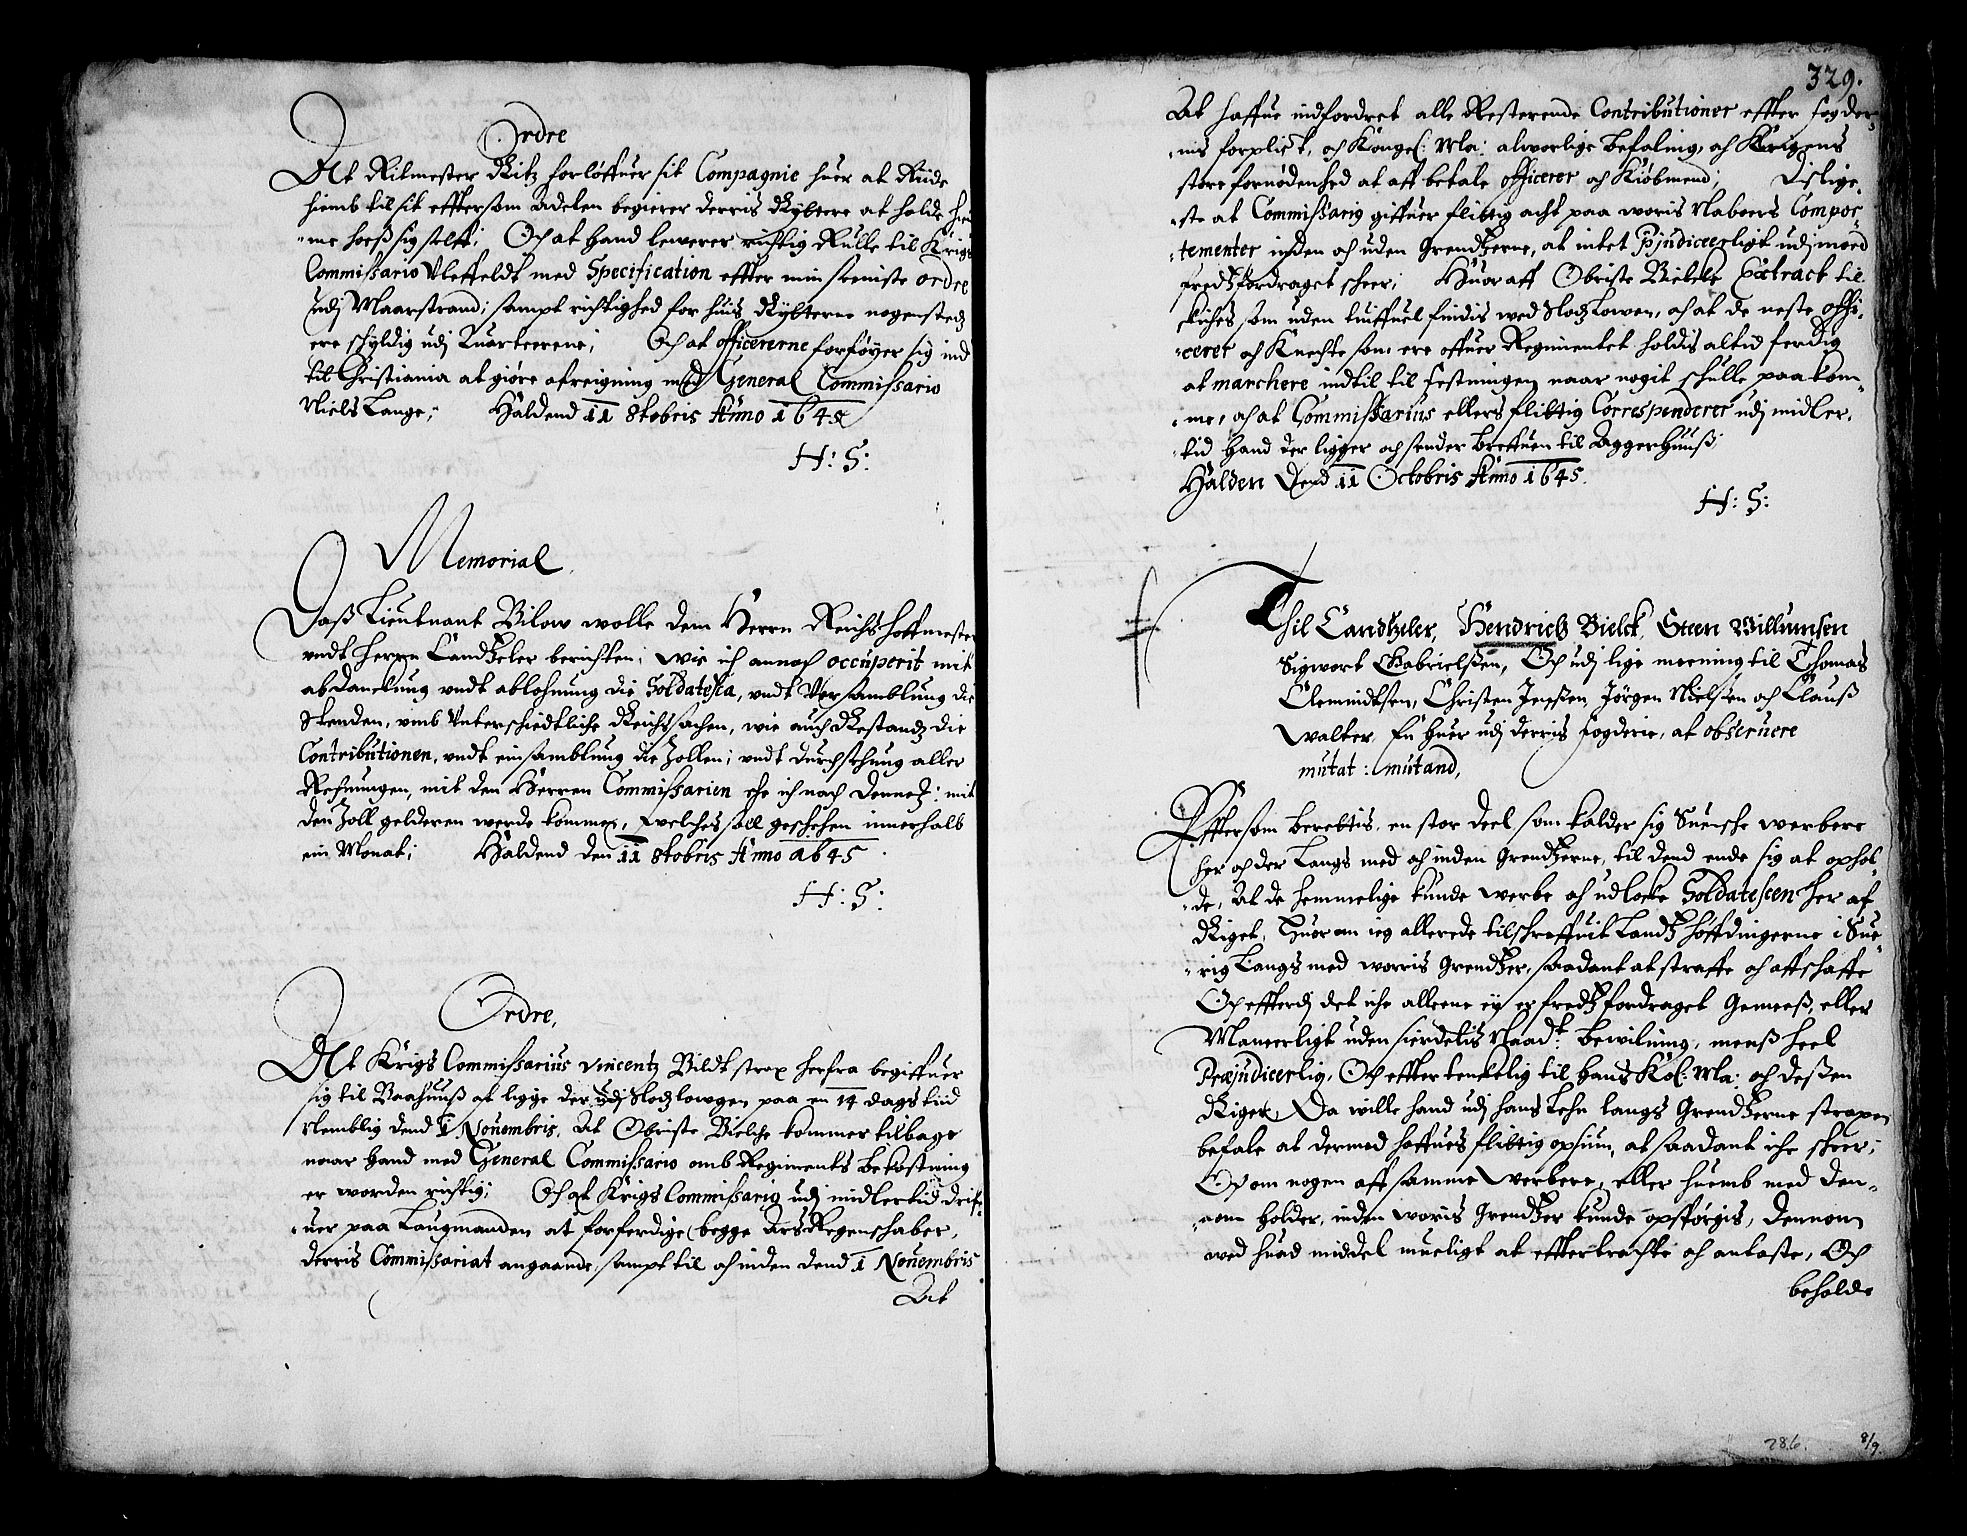 Ordre
At Ritmester Ritz forløffuer sit Compagnie huer at Riide
hiemb til sit effttersom Adelen begierer derris Ryttere at holde hen
me hoeß sig selff; Och at hand leuerer richtig Rulle til Krigs
Commissario Vleffeldt med Specification effter min seeniste ordre
udj Maarstrand; sampt richtighed for huis Rytterne nogensteds
ere schyldig udj Quarteerene; Och at officererne forføyer sig ind
til Christiania at giøre afreigning med General Commissario
Niels Lange; Halden d 11 8tobris Anno 1645
H: S:
Memorial
Daß Lieutnant Bilow wolle dem Herrn Reichshoffmester
undt Herrn Cantzeler berichten; wie ich annoch occuperit mit
abdanckung undt ablohnung die Soldatesca, undt Versamblung die
Stenden, umb Unterschiedtliche Reichssachen, wie auch Restandz die
Contributionen, undt einsamblung die Zollen; undt durchsehung aller
Rechnungen, mit den Herren Commissarien ehe ich nach Dennem: mit
den Zoll gelderen werde kommen, welches soll geschehen innerhalb
ein Monat; Halden d den 11 8tobris Anno 1645
H: S:
Ordre,
At Krigs Commissarius Vincentz Bildt strax herfra begiffuer
sig til Baahuuß at ligge der udj Slodzlowgen paa en 14 dags tiid
Nemblig dend 1 Nouembris. At Obriste Bielche kommer tilbage
naar hand med General Commissario omb Regiments Bekostning
er worden richtig; Och at Krigs Commissarig udj midlertid drif-
uer paa Laugmanden at forferdige begge Ars Regenschaber,
derris Commissariat angaande, sampt til och inden dend 1 Nouembris
At
329.
At haffue indfordret alle Resterende Contributioner effter fogder-
nis forplict, och Kongel: Ma: alworlige Befaling, och Krigens
store fornødenhed at aff betale officerer och Kiøbmend; Dislige-
ste at Commissarig giffuer flittig acht paa woris Naboers Compor-
tementer inden och uden Grendtzerne, at intet Pjudiceerligt udj moed
fredtzfordraget scheer; Huor aff Obriste Bielcke Extract til
skiches som uden tuiffuel findis wed Slodzlowen, och at de neste offi-
cerer och Knechte som ere offuer Regimentet holdis altid ferdig
at marchere indtil til festningen naar nogit schulle paakom-
me, och at Commissarius ellers flittig Correspenderer udj midler-
tid hand der ligger och sender breffuen til Aggerhuuß;
Halden Dend 11 Octobris Anno 1645.
H: S:
Thil Cantzeler, Hendrich Bielck, Steen Willumsen
Sigwort Gabrielsen, Och udj lige meening til Thomas
Clemindtsen, Christen Jensen, Jørgen Nielsen och Clauß
Walter, En huer udj derris fogderie, at obseruere
mutat: mutand,
Effttersom berettis, en stor deel som kalder sig Suensche werbere
her och der langs med och inden Grendtzerne, til dend ende sig at ophol-
de, At de hemmelige kunde werbe och udlocke Soldatescen her af
Riget, Huor om ieg allerede tilschreffuit Landtzhøffdingerne i Sue-
rig langs med worris Grendtzer, saadant at straffe och affschaffe
Och effterdj det iche alleene ey er fredtzfordraget Gemeeß, eller
Maneerligt uden sierdelis Naad: bewilning, menß heel
Præjudiceerlig, Och effter tenckelig til Hans Kol: Ma: och deßen
Riger, Da wille hand udj hans Lehn langs Grendtzerne straxen
befale at dermed haffues flittig opsiun, at saadant iche skeer;
Och om nogen aff samme Werbere, eller huemb med den-
nom holder, inden woris Grendtzer kunde opspørgis, dennom
wed huad middel mueligt at effttertrachte och antaste, Och
beholde
286. 8/9.